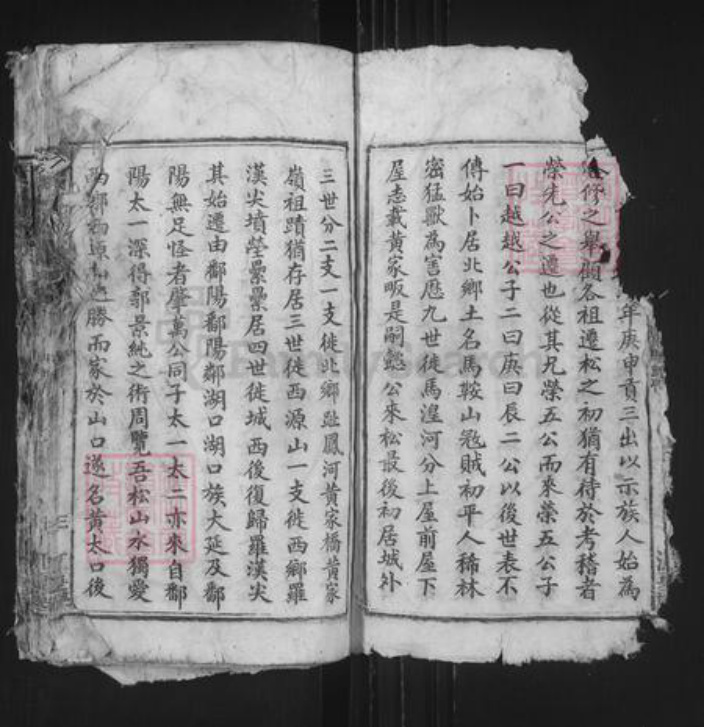 年庚申貢三出以示族人始為
修之舉顧各祖遷松之初猶有待於考稽者
榮先公之遷也從其兄榮五公而來榮五公子
一曰越越公子二曰庚曰辰二公以後世表不
傳始卜居北鄉土名馬鞍山寇賊初平人稀林
密猛獸為害歷九世徙馬湟河分上屋前屋下
屋志載黃家畈是嗣懿公來松最後初居城外
三世分二支一支徙北鄉趾鳳河黃家橋黃家
嶺祖蹟猶存居三世徙西源山一支徙西鄉羅
漢尖墳塋纍纍居四世徙城西後復歸羅漢尖
其始遷由鄱陽鄱陽鄰湖口湖口族大延及鄱
陽無足怪者肇萬公同子太一太二亦來自鄱
陽太一深得郭景純之術周覽吾松山水獨愛
鄉 源 之勝而家於山口遂名黃太口後
FamilySearch